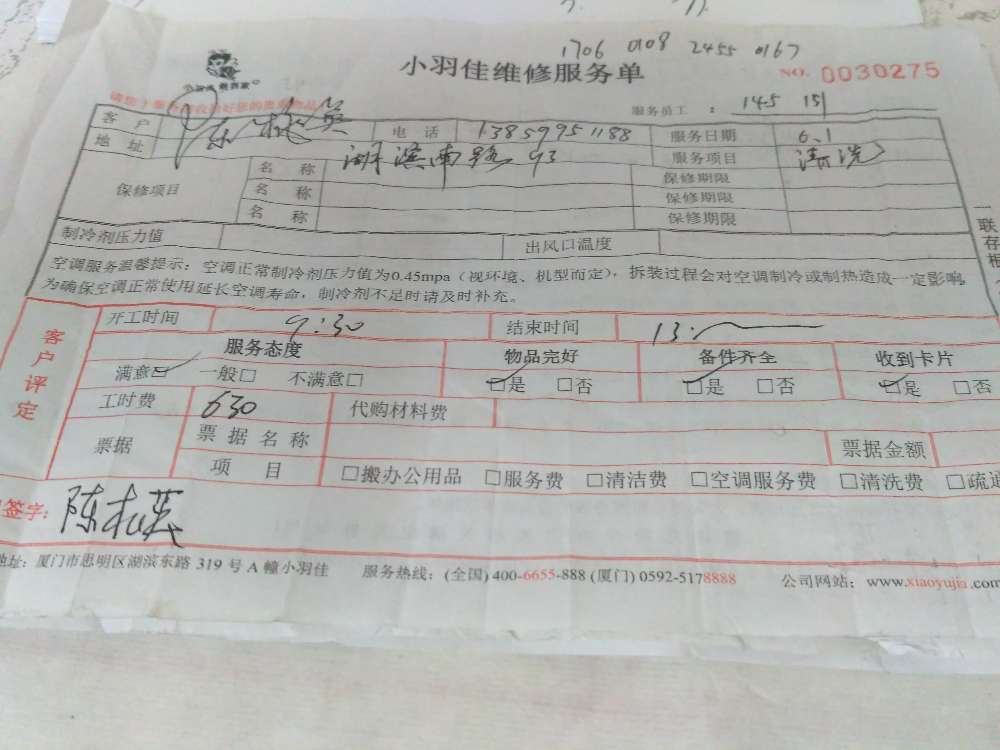 1706 0108 2455 0167
小羽佳维修服务单 NO. 0030275
服务员工 : 145 151
客户 电话 13859951188 服务日期 6.1
地址 湖滨南路 93 服务项目 清洗
保修项目 名称 保修期限
名称 保修期限
名称 保修期限
制冷剂压力值 出风口温度
空调服务温馨提示:空调正常制冷剂压力值为0.45mpa(视环境、机型而定),拆装过程会对空调制冷或制热造成一定影响,
为确保空调正常使用延长空调寿命,制冷剂不足时请及时补充。
一联存根
客户评定
开工时间 9:30 结束时间 13:
服务态度 物品完好 备件齐全 收到卡片
满意☑ 一般□ 不满意□ ☑是 □否 ☑是 □否 ☑是 □否
工时费 630 代购材料费
票据 票据名称 票据金额
项目 □搬办公用品 □服务费 □清洁费 □空调服务费 □清洗费 □疏通
签字: 陈松英
地址:厦门市思明区湖滨东路 319 号 A 幢小羽佳 服务热线:(全国) 400-6655-888 (厦门) 0592-5178888 公司网站:www.xiaoyujia.com